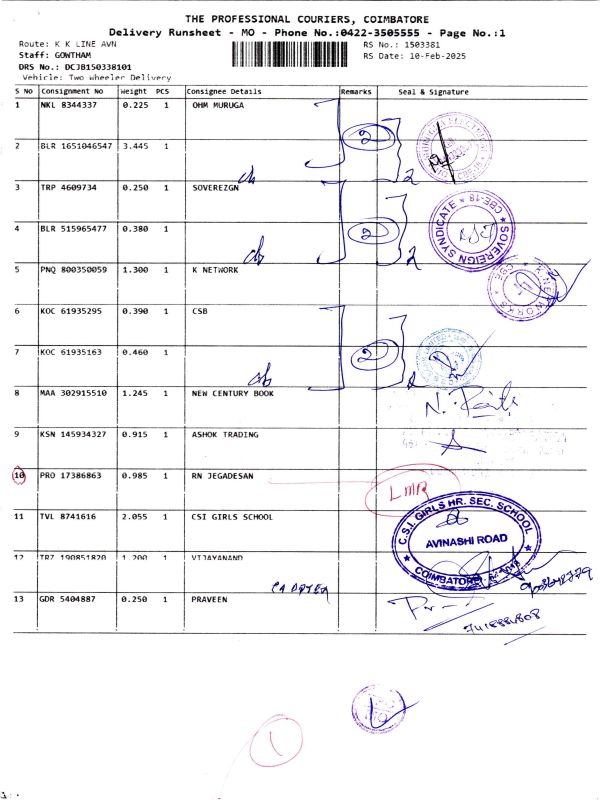 THE PROFESSIONAL COURIERS, COIMBATORE
Delivery Runsheet - MO - Phone No.:0422-3505555 - Page No.:1
Route: K K LINE AVN RS No.: 1503381
Staff: GOWTHAM RS Date: 10-Feb-2025
DRS No.: DCJB150338101
Vehicle: Two Wheeler Delivery
S No Consignment No Weight PCS Consignee Details Remarks Seal & Signature
1 NKL 8344337 0.225 1 OHM MURUGA
2
2 BLR 1651046547 3.445 1
2
3 TRP 4609734 0.250 1 SOVEREZGN
SOVEREIGN SYNDICATE * CBE-18 *
4 BLR 515965477 0.380 1
2
2
5 PNQ 800350059 1.300 1 K NETWORK
K NETWORKS * CBE
6 KOC 61935295 0.390 1 CSB
7 KOC 61935163 0.460 1
2
8 MAA 302915510 1.245 1 NEW CENTURY BOOK
9 KSN 145934327 0.915 1 ASHOK TRADING
10 PRO 17386863 0.985 1 RN JEGADESAN
LMR
11 TVL 8741616 2.055 1 CSI GIRLS SCHOOL
C.S.I. GIRLS HR. SEC. SCHOOL
AVINASHI ROAD
COIMBATORE
12 TRZ 190851820 1.200 1 VIJAYANAND
13 GDR 5404887 0.250 1 PRAVEEN
1